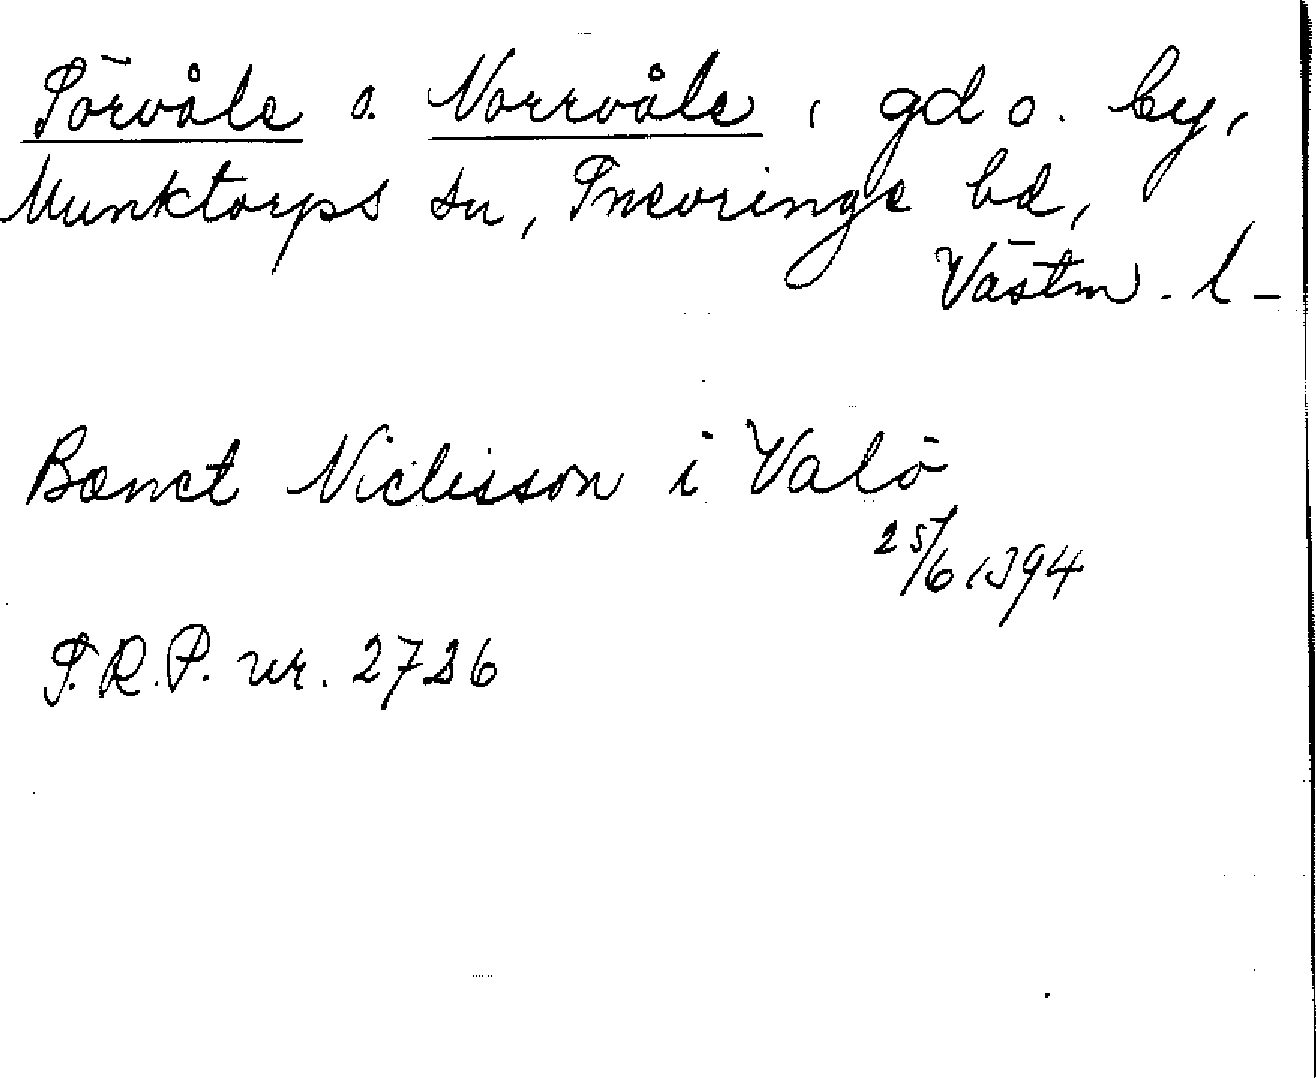 Sörvåle o. Norrvåle, gd o. by,
Munktorps sn, Snevringe hd,
Västm. l-
Bænct Niclisson i Valö
25/6 1394
S.R.P. nr. 2726